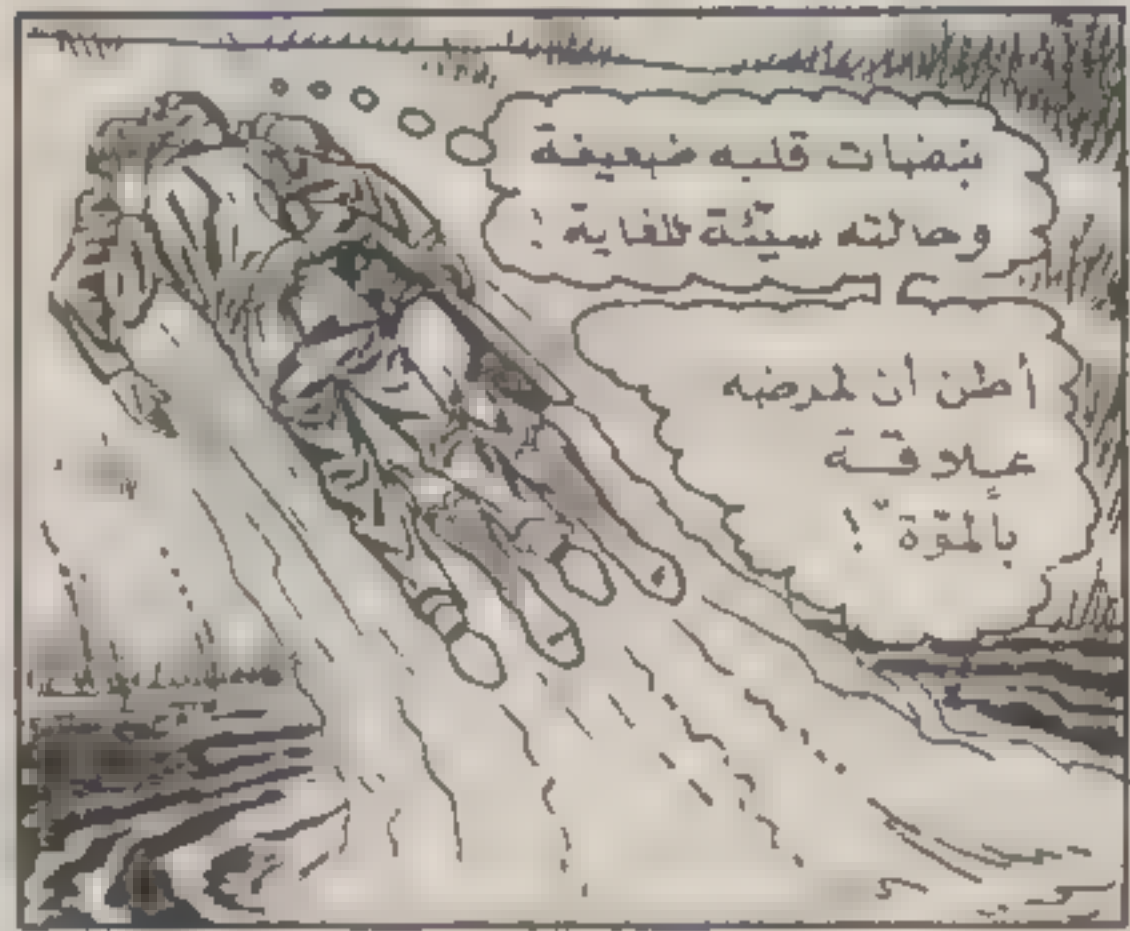 نبضات قلبه ضعيفة
وحالته سيّئة للغاية !
أظن أن لمرضه
علاقة
بالمرّة !